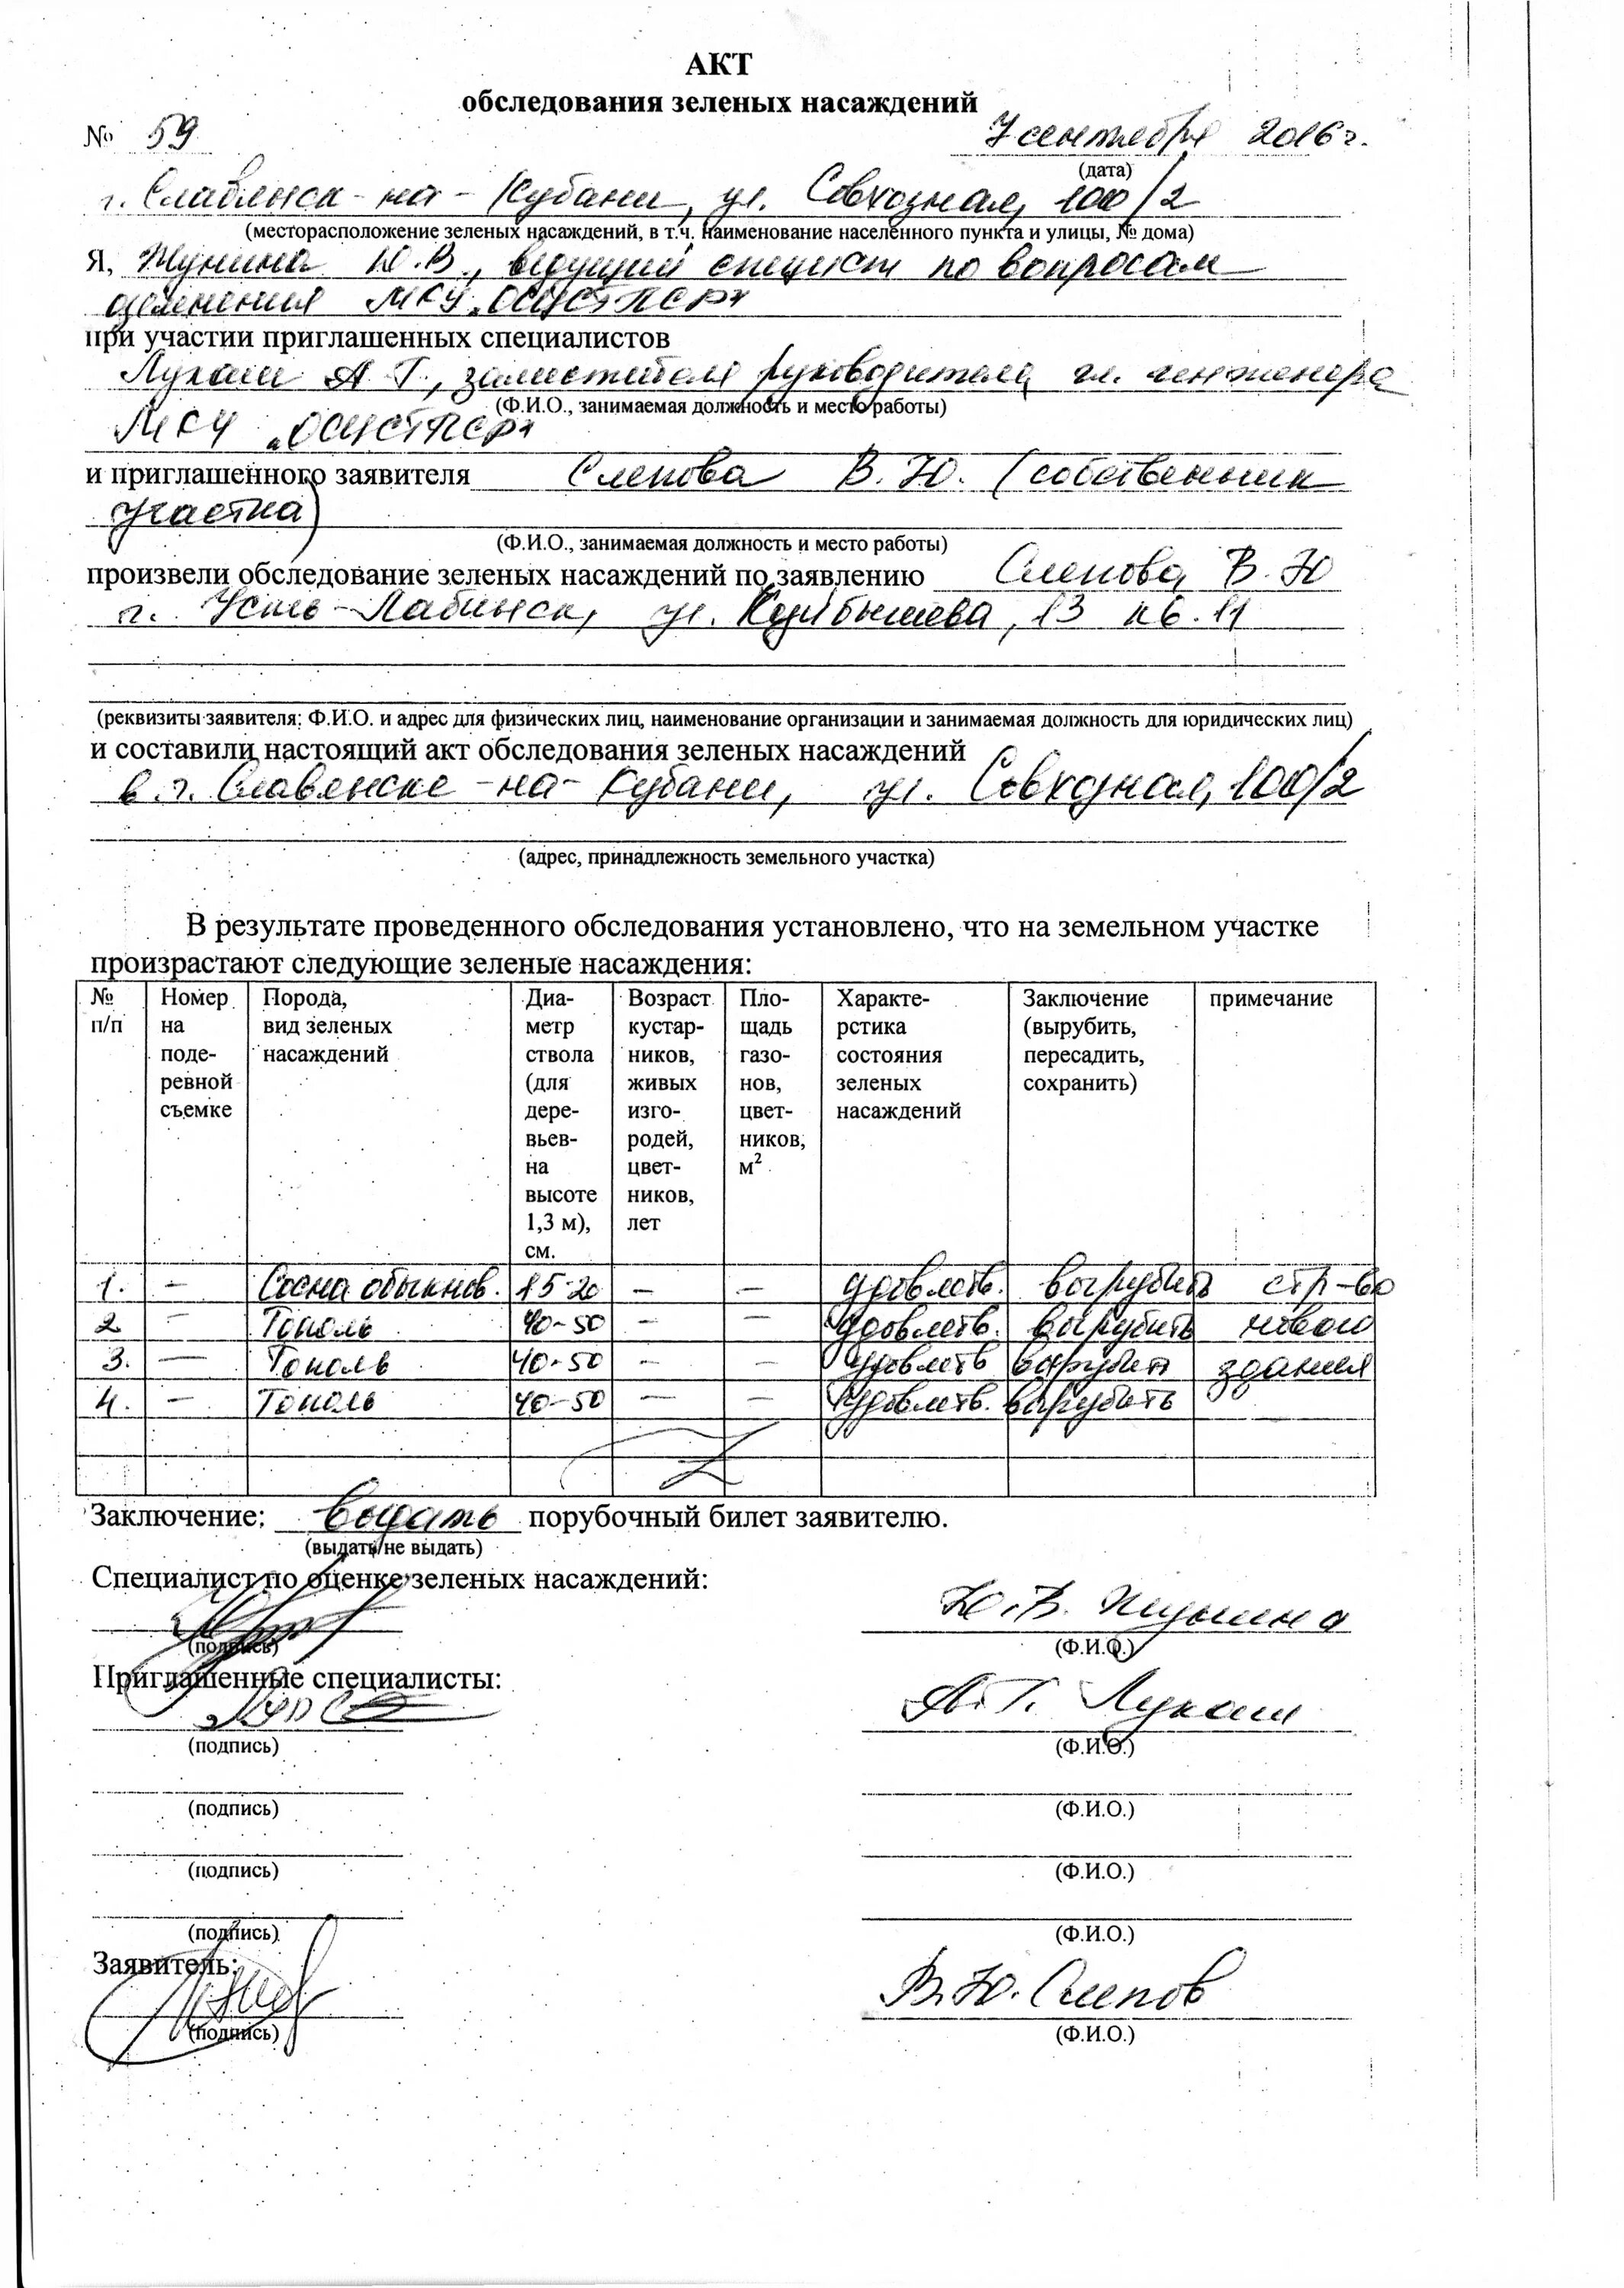 АКТ
обследования зеленых насаждений
№ 59 7 сентября 2016 г.
(дата)
г. Славянск-на-Кубани, ул. Совхозная, 100/2
(месторасположение зеленых насаждений, в т.ч. наименование населенного пункта и улицы, № дома)
Я, Ю.В., ведущий специст по вопросам
озеленения МКУ
при участии приглашенных специалистов
Лукаш А.Г., заместителя руководителя, гл. инженера
(Ф.И.О., занимаемая должность и место работы)
МКУ
и приглашенного заявителя Слепова В.Ю. (собственник
участка)
(Ф.И.О., занимаемая должность и место работы)
произвели обследование зеленых насаждений по заявлению Слепова В.Ю
г. Усть-Лабинск, ул. Куйбышева, 13 кв. 11
(реквизиты заявителя: Ф.И.О. и адрес для физических лиц, наименование организации и занимаемая должность для юридических лиц)
и составили настоящий акт обследования зеленых насаждений
в г. Славянске-на-Кубани, ул. Совхозная, 100/2
(адрес, принадлежность земельного участка)
В результате проведенного обследования установлено, что на земельном участке
произрастают следующие зеленые насаждения:
№ п/п
Номер на поде-ревной съемке
Порода, вид зеленых насаждений
Диа-метр ствола (для дере-вьев-на высоте 1,3 м), см.
Возраст кустар-ников, живых изго-родей, цвет-ников, лет
Пло-щадь газо-нов, цвет-ников, м²
Характе-рстика состояния зеленых насаждений
Заключение (вырубить, пересадить, сохранить)
примечание
1. – Сосна обыкнов. 15-20 – – удовлетв. вырубить стр-во
2 – Тополь 40-50 – – удовлетв. вырубить нового
3. – Тополь 40-50 – – удовлетв вырубить здания
4. – Тополь 40-50 – – удовлетв. вырубить
Заключение: выдать порубочный билет заявителю.
(выдать/не выдать)
Специалист по оценке зеленых насаждений:
Ю.В.
(подпись) (Ф.И.О.)
Приглашенные специалисты:
А.Г. Лукаш
(подпись) (Ф.И.О.)
(подпись) (Ф.И.О.)
(подпись) (Ф.И.О.)
(подпись) (Ф.И.О.)
Заявитель:
В.Ю. Слепов
(подпись) (Ф.И.О.)